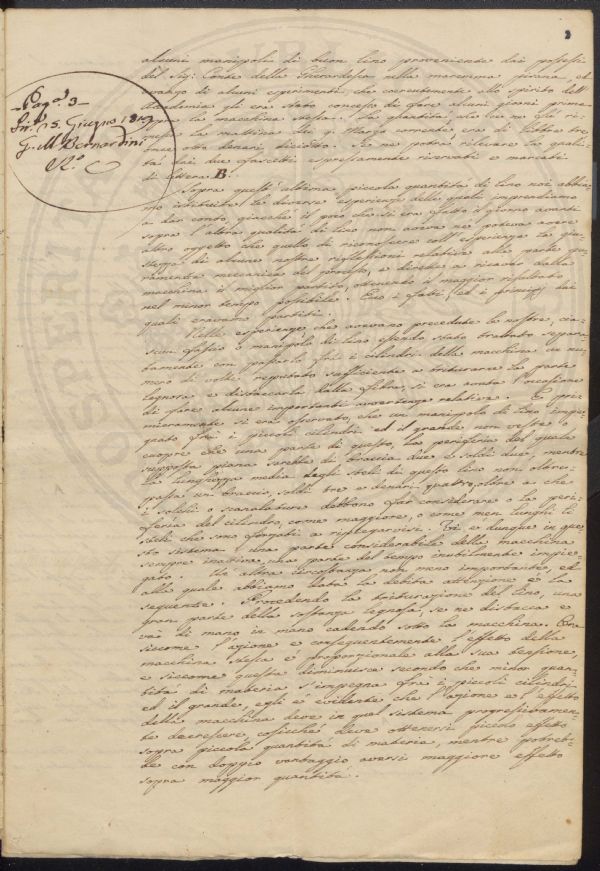 3
Pag.ª 3
Int. 15. Giugno 1819
G. M. Bernardini
alcuni manipoli di buon lino proveniente dai possessi
del Sig: Conte della Gherardesca nella maremma pisana, ed
avanzo di alcuni esperimenti, che coerentemente allo spirito dell'
Accademia gli era stato concesso di fare alcuni giorni prima
sopra la macchina stessa. La quantità, che ce ne
la mattina dei 9: Marzo corrente era di libbre tre
once otto denari diciotto. Se ne potrà rilevare la quali-
tà dai due espressamente riservati e marcati
di lettera B.
Sopra quest'ultima piccola quantità di lino noi abbia-
mo istituite le diverse esperienze delle quali imprendiamo
a dar conto, giacchè il poco che si era fatto il giorno avanti
sopra l'altra qualità di lino non aveva nè poteva avere
altro oggetto che quello di riconoscere coll'esperienza la giu-
stezza di alcune nostre riflessioni relative alla parte pu-
ramente meccanica del processo, e dirette a ricavar dalla
macchina il miglior partito, ottenendo il maggior resultato
nel minor tempo possibile. Ecco i fatti, ed i principj dai
quali eravamo partiti.
Nelle esperienze che avevano precedute le nostre, cia-
scun fascio o manipolo di lino essendo stato trattato separa-
tamente con passarlo frà i cilindri della macchina un nu-
mero di volte reputato sufficiente a triturarne la parte
legnosa e distaccarla dalla fibra, si era avuta l'occasione
di fare alcune importanti avvertenze relative. E pri-
mieramente si era osservato, che un manipolo di lino impe-
gnato frà i piccoli cilindri ed il grande non veste o
cuopre che una parte di questo, la periferia del quale
supposta piana sarebbe di braccia due e soldi due, mentre
la lunghezza media degli steli di questo lino non oltre-
passa un braccio, soldi tre e denari quattro, oltre a che
i solchi o scanalature debbono far considerare o la peri-
feria del cilindro, come maggiore, o come men lunghi li
steli che son forzati a ripiegarvisi. Vi è dunque in que-
sto sistema una parte considerabile della macchina
sempre inattiva, una parte del tempo inutilmente impie-
gato. Un altra circostanza non meno importante, ed
alla quale abbiamo data la debita attenzione è la
seguente. Procedendo la triturazione del lino, una
gran parte della sostanza legnosa, se ne distacca e
và di mano in mano cadendo sotto la macchina. Ora
siccome l'azione e conseguentemente l'effetto della
macchina stessa è proporzionale alla sua tensione,
e siccome questa diminuisce secondo che minor quan-
tità di materia s'impegna frà i piccoli cilindri
ed il grande, egli è evidente che l'azione e l'effetto
della macchina deve in qual sistema progressivamen-
te decrescere, cosicchè deve ottenersi piccolo effetto
sopra piccola quantità di materia, mentre potreb-
be con doppio vantaggio aversi maggiore effetto
sopra maggior quantità.